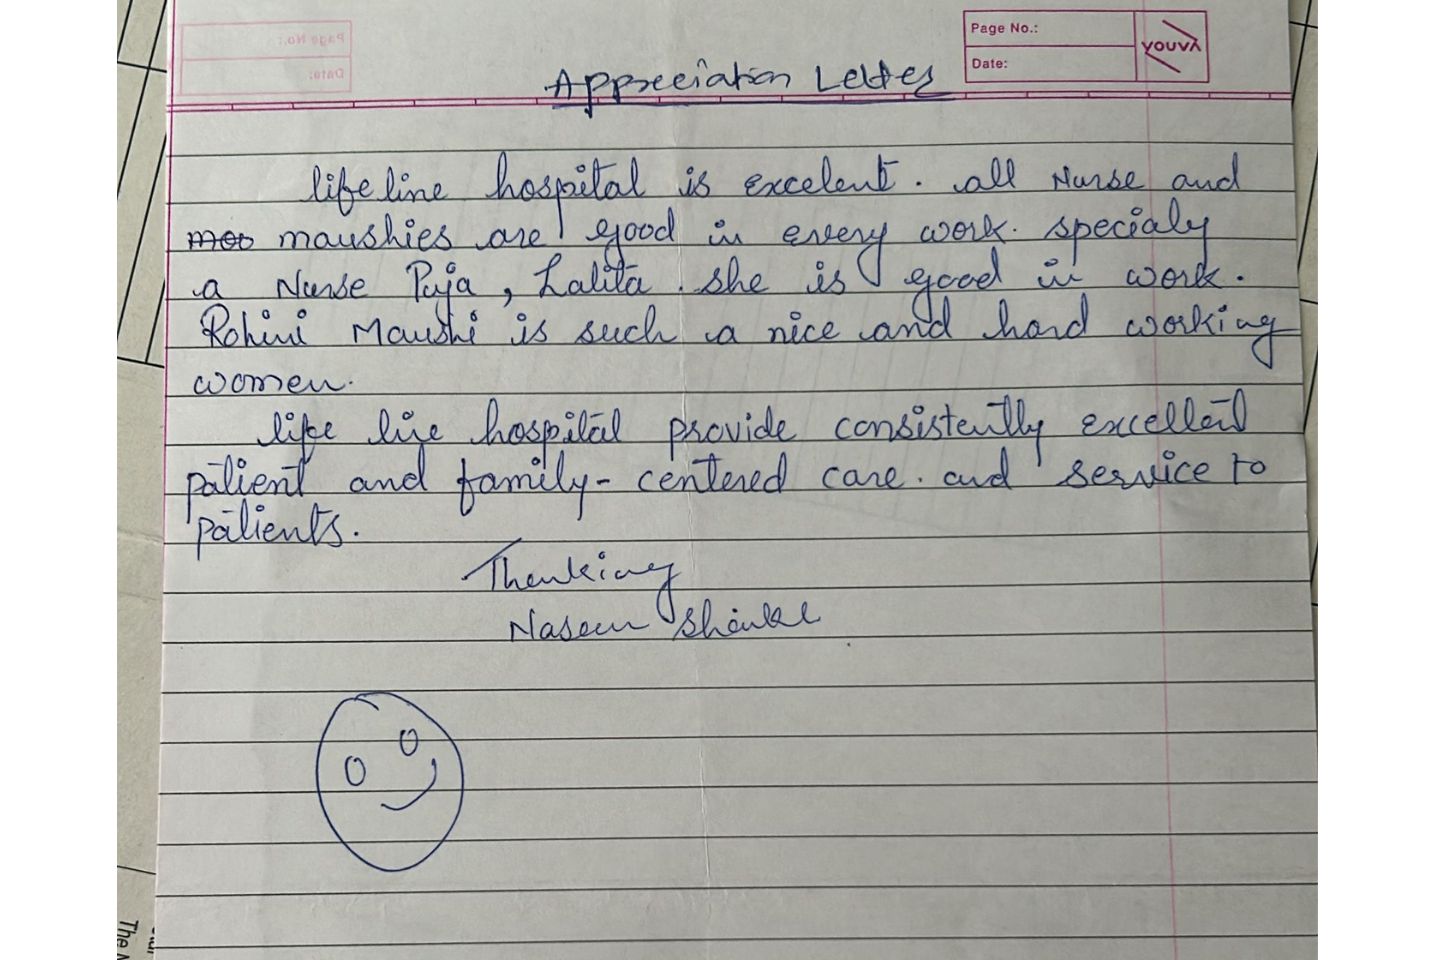 Page No.:
Date:
youva
Appreciation Letter
lifeline hospital is excelent. all Nurse and
maushies are good in every work. specialy
a Nurse Puja, Lalita. she is good in work.
Rohini Maushi is such a nice and hard working
women.
life line hospital provide consistently excellent
patient and family-centered care. and service to
patients.
Thanking
Naseem
The